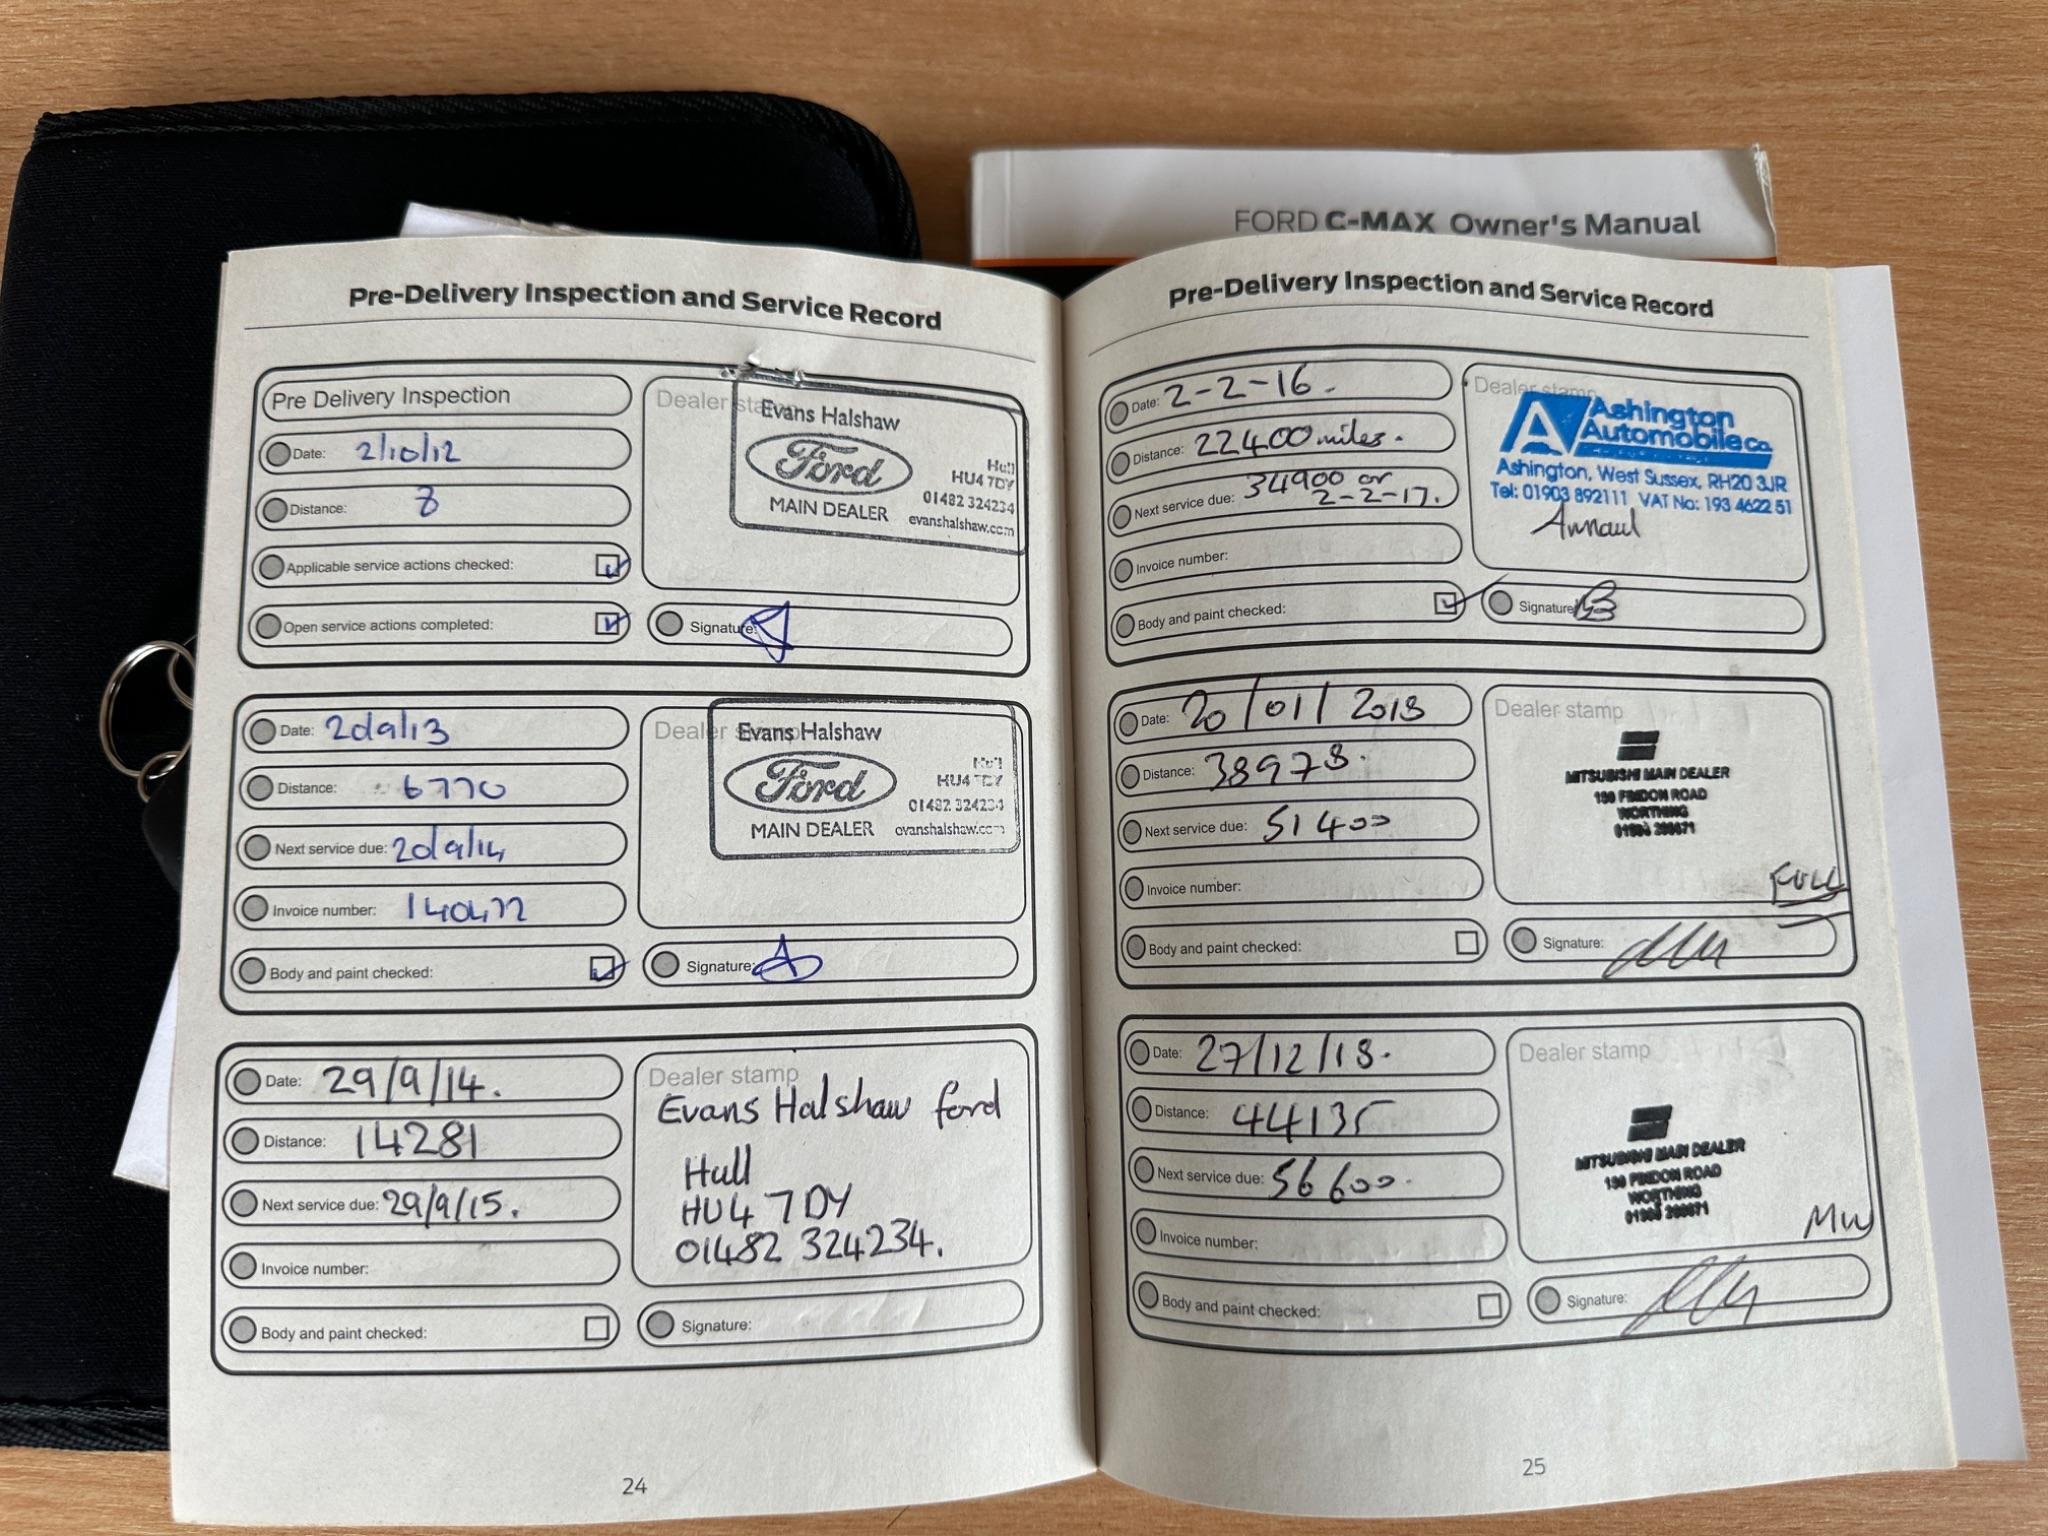 FORD C-MAX Owner's Manual
Pre-Delivery Inspection and Service Record
Pre Delivery Inspection
Date: 2/10/12
Distance: 8
Applicable service actions checked:
Open service actions completed:
Dealer stamp
Evans Halshaw
Ford
MAIN DEALER
Hull
HU4 7DY
01482 324234
evanshalshaw.com
Signature:
Date: 20/9/13
Distance: 6770
Next service due: 20/9/14
Invoice number: 140477
Body and paint checked:
Dealer stamp
Evans Halshaw
Ford
MAIN DEALER
Hull
HU4 7DY
01482 324234
evanshalshaw.com
Signature:
Date: 29/9/14.
Distance: 14281
Next service due: 29/9/15.
Invoice number:
Body and paint checked:
Dealer stamp
Evans Halshaw ford
Hull
HU4 7DY
01482 324234.
Signature:
24
Pre-Delivery Inspection and Service Record
Date: 2-2-16.
Distance: 22400 miles.
Next service due: 34900 or
2-2-17.
Invoice number:
Body and paint checked:
Dealer stamp
Ashington
Automobile Co.
Ashington, West Sussex, RH20 3JR
Tel: 01903 892111 VAT No: 193 4622 51
Signature:
Date: 20/01/2018
Distance: 38978.
Next service due: 51400
Invoice number:
Body and paint checked:
Dealer stamp
MITSUBISHI MAIN DEALER
ROAD
WORTHING
FULL
Signature:
Date: 27/12/18.
Distance: 44135
Next service due: 56600.
Invoice number:
Body and paint checked:
Dealer stamp
MITSUBISHI MAIN DEALER
ROAD
WORTHING
Signature:
25